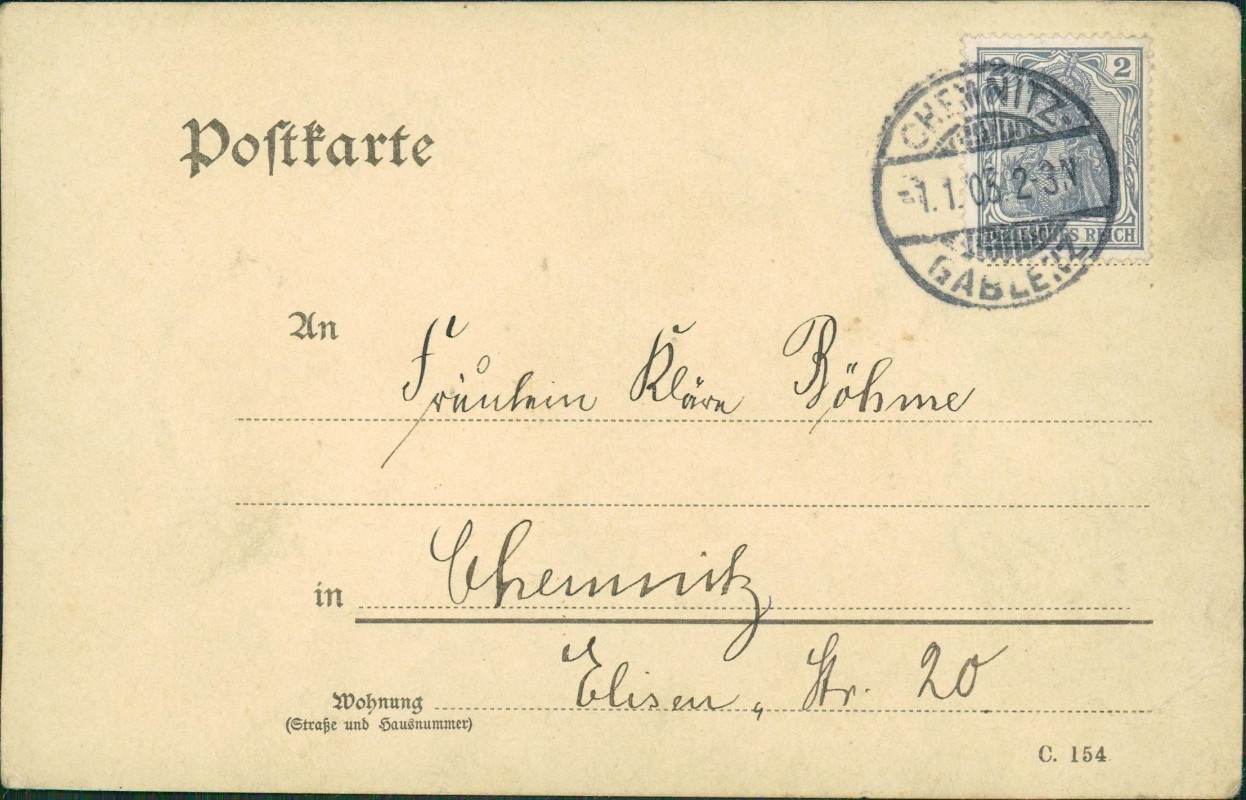 Postkarte
2
DEUTSCHES REICH
CHEMNITZ.
1.1.05 2-3N
GABLENZ
An Fräulein Kläre Böhme
in Chemnitz
Wohnung Elisen-Str. 20
(Straße und Hausnummer)
C. 154